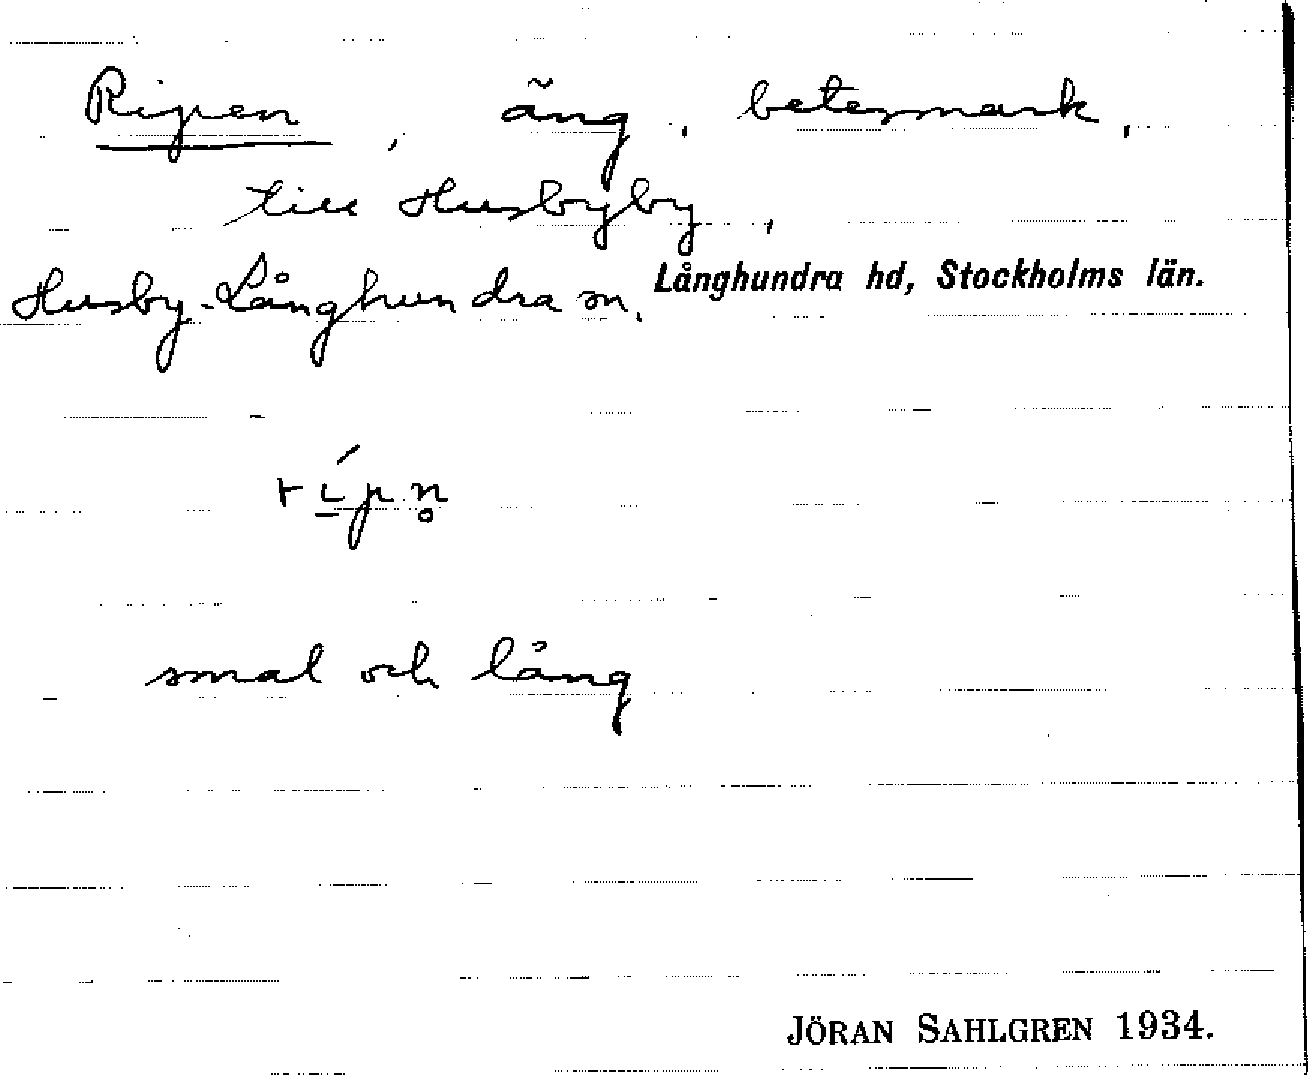 Ripen, äng, betesmark,
till Husbyby,
Husby-Långhundra sn, Långhundra hd, Stockholms län.
rí̱pn̥
smal och lång
JÖRAN SAHLGREN 1934.